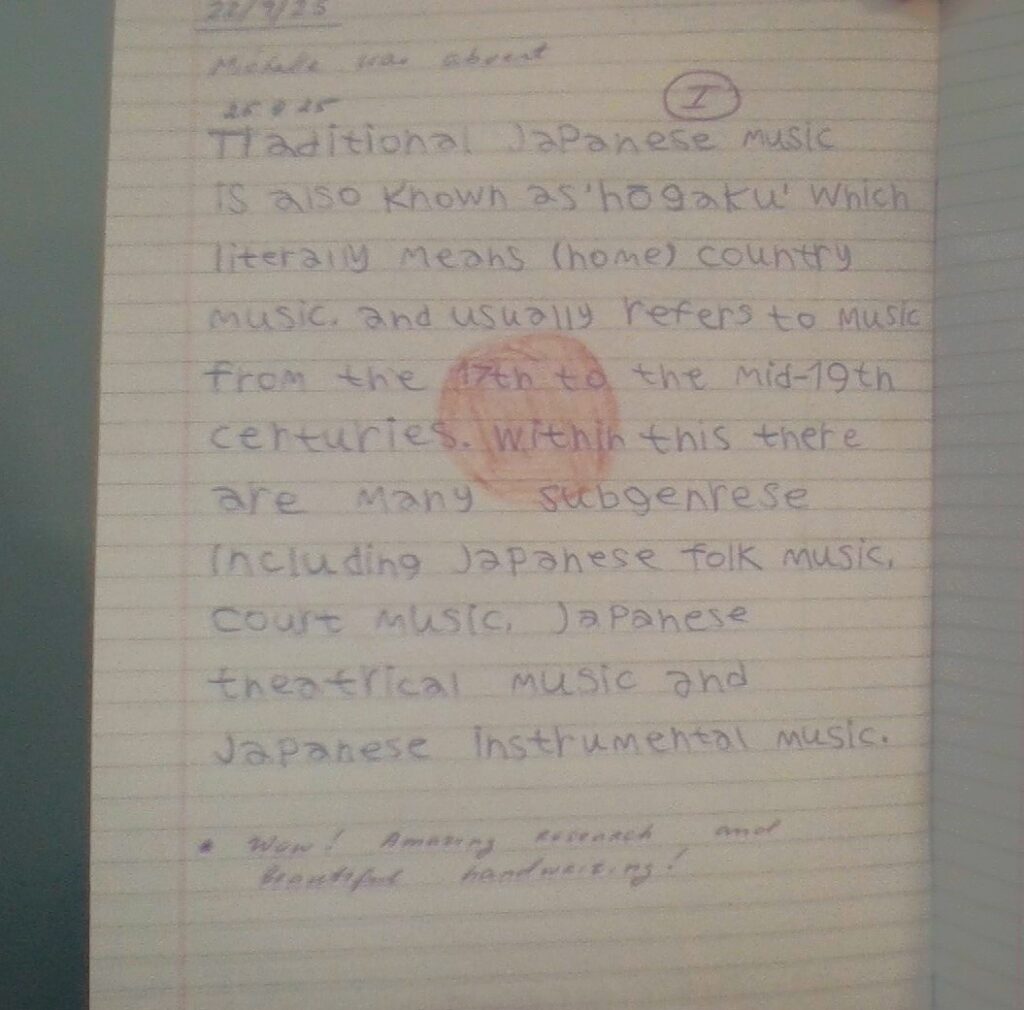 22/9/25
Michelle was absent
I
Traditional Japanese music
is also known as 'hōgaku' which
literally means (home) country
music. and usually refers to music
from the 17th to the mid-19th
centuries. Within this there
are many subgenrese
including Japanese folk music,
court music, Japanese
theatrical music and
Japanese instrumental music.
* Wow! Amazing research and
beautiful handwriting!